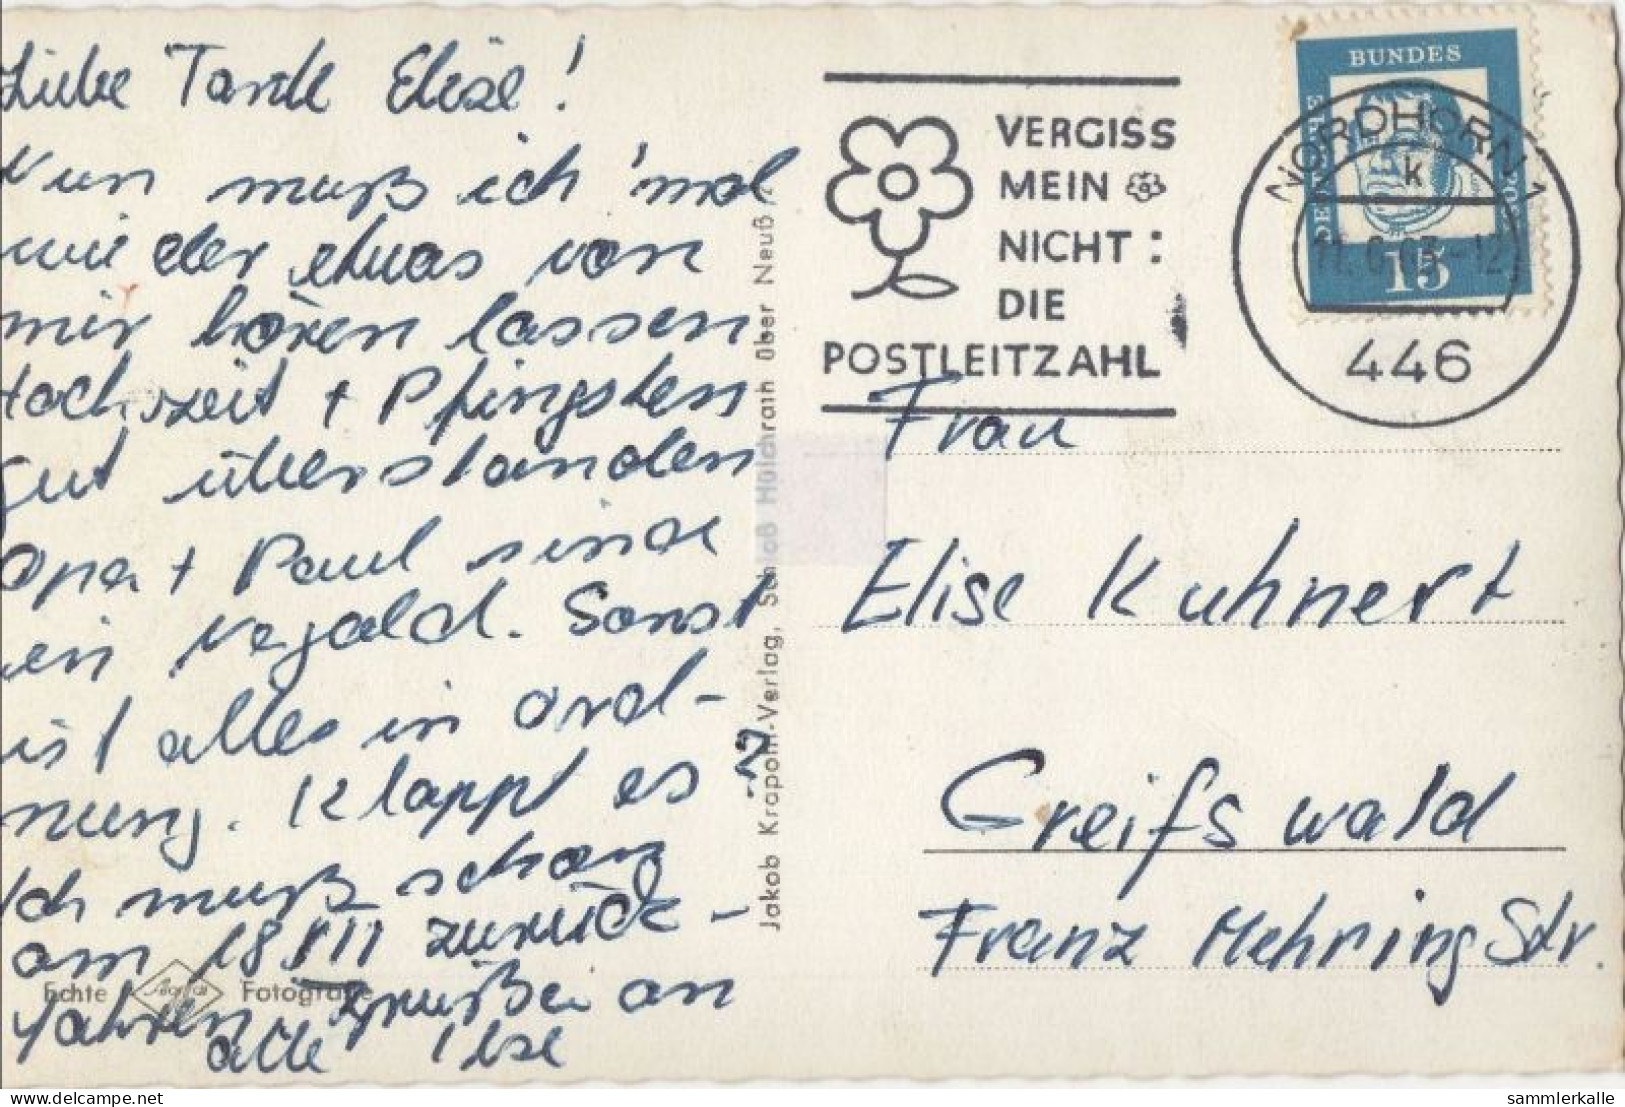 Liebe Tante Elise!
Nun muß ich 'mal
wieder etwas von
mir hören lassen
Hochzeit + Pfingsten
gut überstanden
Opa + Paul sind
in
Sonst
ist alles in Ord-
nung. Klappt es?
Ich muß schon
am 18. VII zurück-
fahren Grüße an
alle Ilse
Echte Agfa Fotografie
Jakob Krapohl-Verlag, Schloß Hülchrath über Neuß
VERGISS
MEIN
NICHT:
DIE
POSTLEITZAHL
DEUTSCHE BUNDESPOST
15
NORDHORN 1
k
-12
446
Frau
Elise Kuhnert
Greifswald
Franz Mehring Str.
sammlerkalle